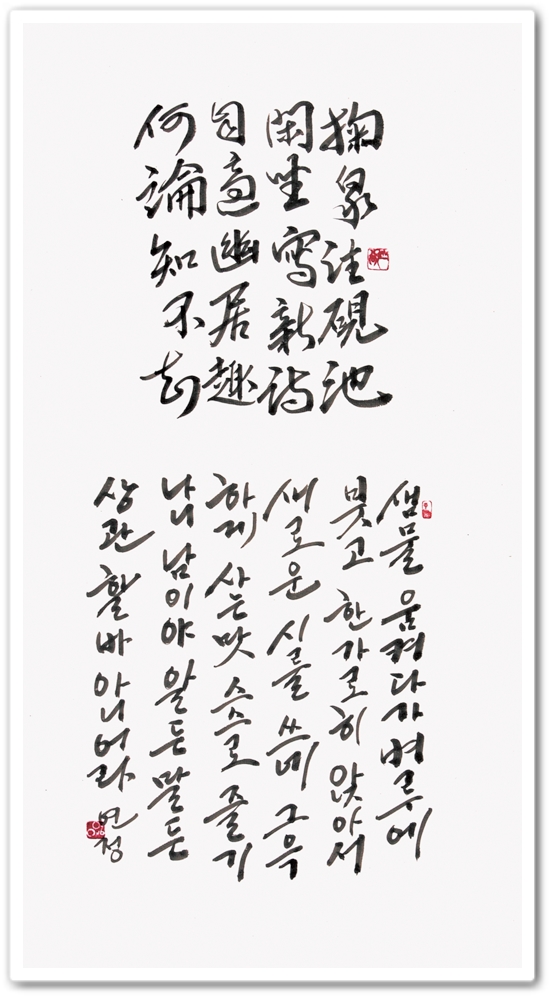 掬泉注硯池
閑坐寫新詩
自適幽居趣
何論知不知
샘물 움켜다가 벼루에
붓고 한가로히 앉아서
새로운 시를 쓰네 그윽
하게 사는 맛 스스로 즐기
나니 남이야 알든 말든
상관 할 바 아니어라 연정